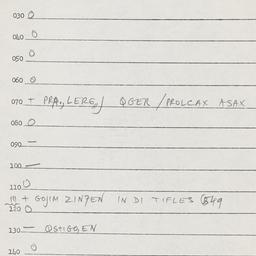 030 0
040 0
050 0
060 0
070 + PRA,, LERE,/ QGER / PROLCAX ASAX
080 0
090 —
100 —
110 0
111 + GOJIM ZINGEN IN DI TIFLES
120 0
130 —
140 0